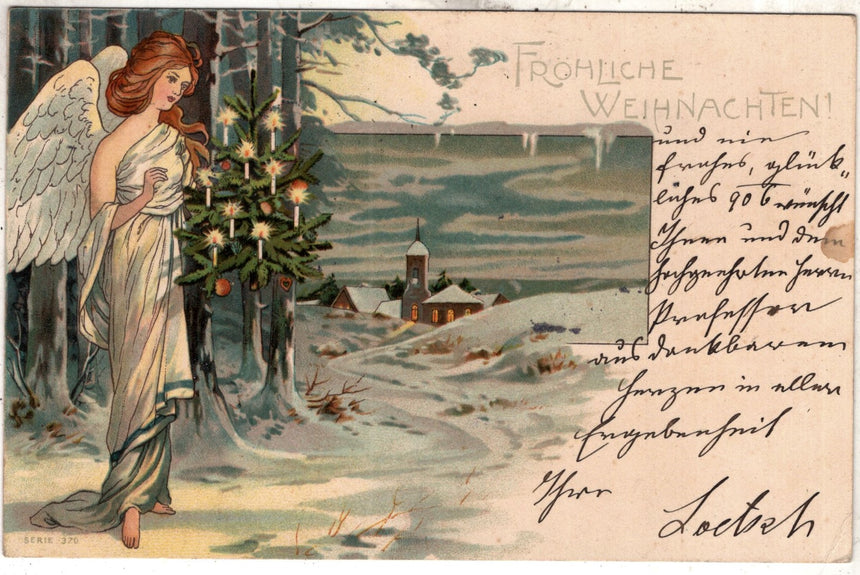 FRÖHLICHE
WEIHNACHTEN!
und ein
frohes, glück„
liches 906 wünscht
Ihnen und dem
hochgeehrten Herrn
Professor
aus dankbarem
Herzen in aller
Ergebenheit
Ihre
Loetsch
SERIE 370